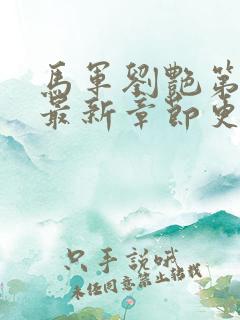 馬軍劉艷第
最新章節更
只手說哦
未經同意禁止轉載